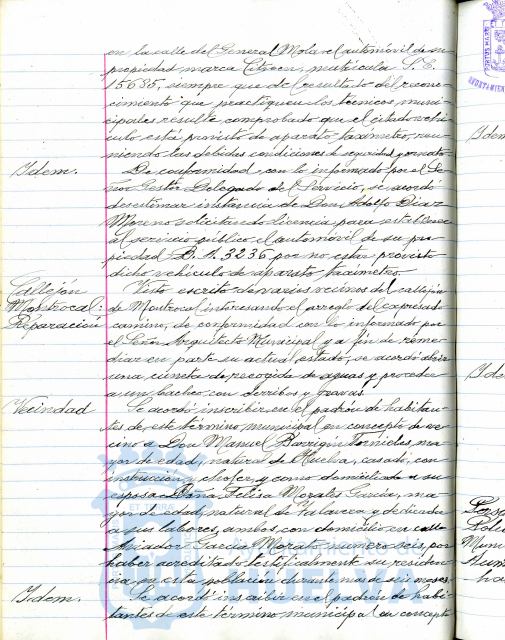 en la calle del General Mola el automóvil de su
propiedad marca Citroen, matrícula S.E.
15685, siempre que del resultado del recono-
cimiento que practiquen los técnicos muni-
cipales resulte comprobado que el citado vehí-
culo está provisto de aparato taxímetro, reu-
niendo las debidas condiciones de seguridad y ornato.
Idem.
De conformidad con lo informado por el Se-
ñor Gestor Delegado del Servicio, se acordó
desestimar instancia de Don Adolfo Díaz
Moreno solicitando licencia para establecer
al servicio público el automóvil de su pro-
piedad B.A. 3236 por no estar provisto
dicho vehículo de aparato taxímetro.
Callejón
Montrocal:
Reparación
Visto escrito de varios vecinos del callejón
de Montrocal interesando el arreglo del expresado
camino, de conformidad con lo informado por
el Señor Arquitecto Municipal y a fin de reme-
diar en parte su actual estado, se acordó abrir
una cuneta de recogida de aguas y proceder
a un bacheo con derribos y gravas.
Vecindad
Se acordó inscribir en el padrón de habitan-
tes de este término municipal en concepto de ve-
cino a Don Manuel Barrigón Tornieles, ma-
yor de edad, natural de Huelva, casado, con
instrucción, chofer, y como domiciliada a su
esposa Doña Felisa Morales García, ma-
yor de edad, natural de y dedicada
a sus labores, ambos con domicilio en calle
Aviador García Morato número seis, por
haber acreditado testificalmente su residen-
cia en esta población durante mas de seis meses.
Idem.
Se acordó inscribir en el padrón de habi-
tantes de este término municipal en concepto
Ayuntamiento de
HUELVA